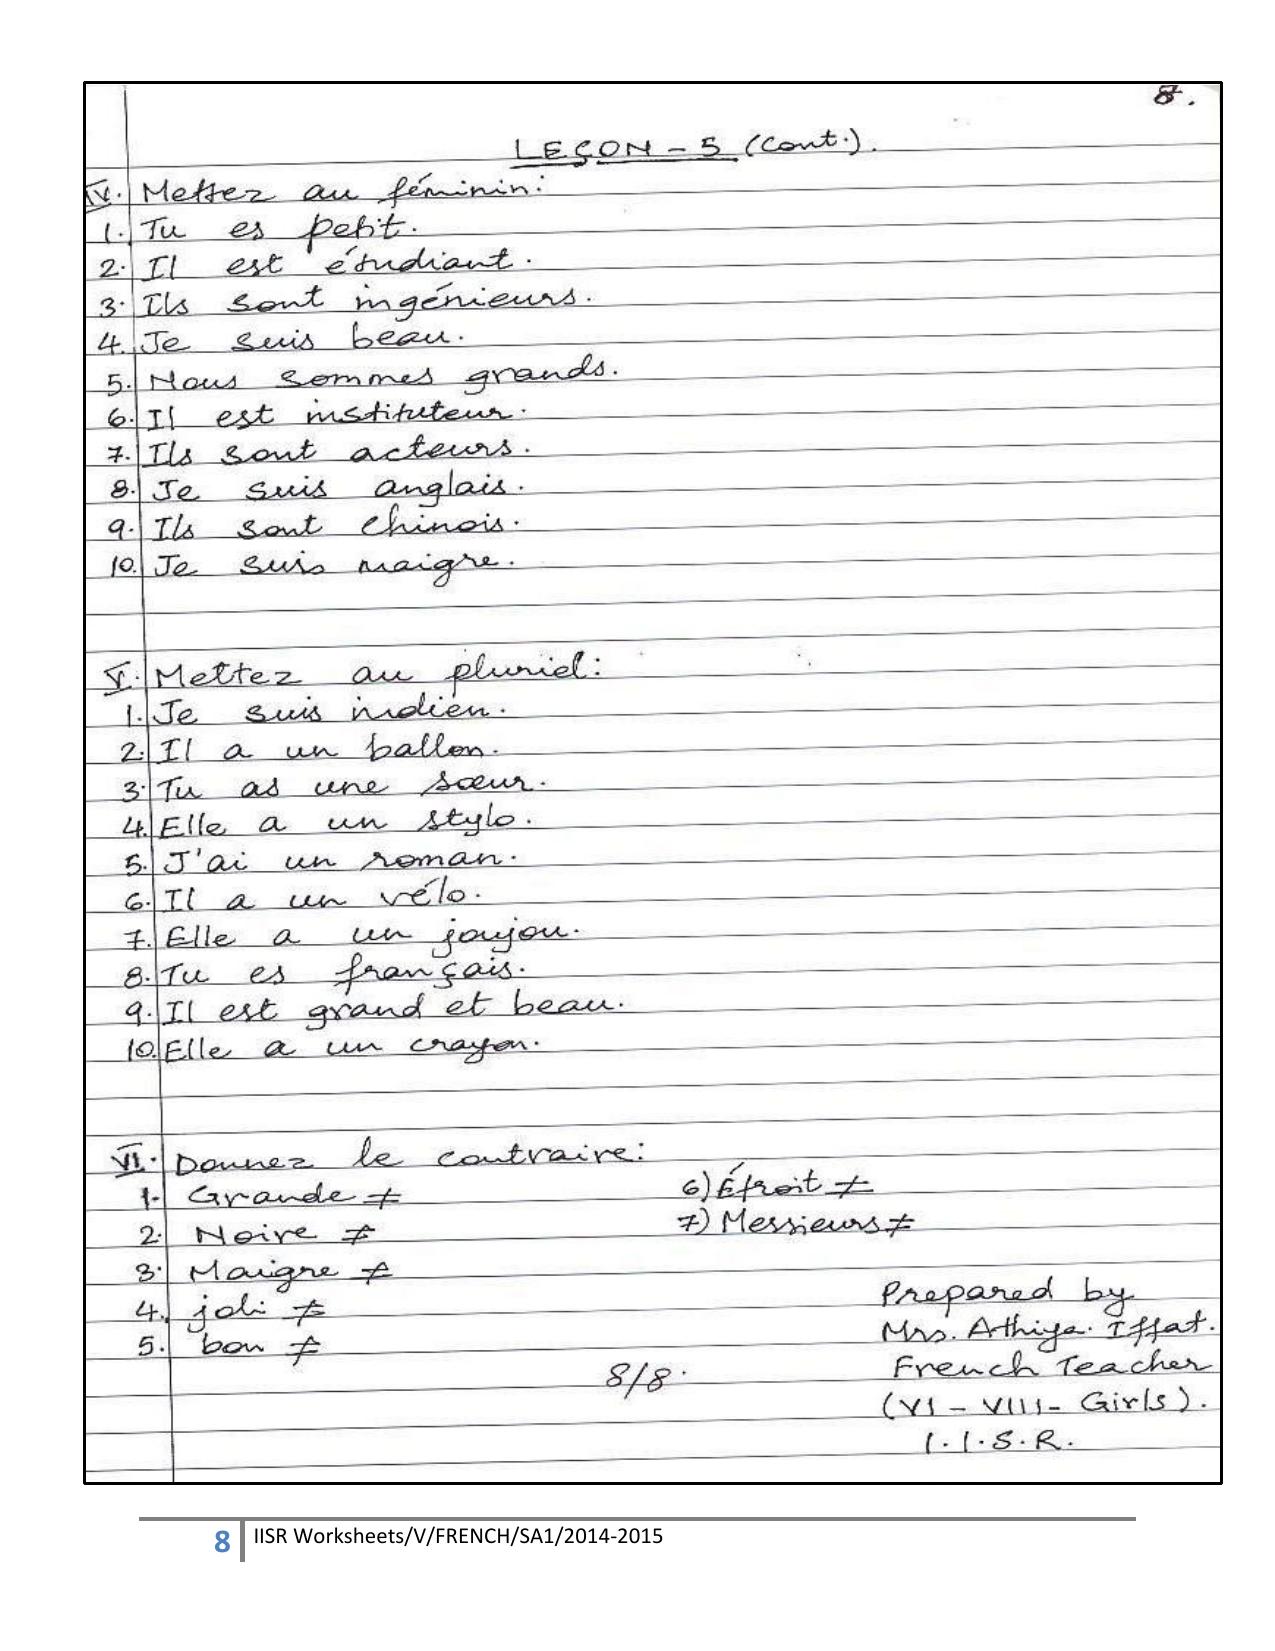 8.
LEÇON - 5 (Cont.).
IV. Mettez au féminin:
1. Tu es petit.
2. Il est étudiant.
3. Ils sont ingénieurs.
4. Je suis beau.
5. Nous sommes grands.
6. Il est instituteur.
7. Ils sont acteurs.
8. Je suis anglais.
9. Ils sont chinois.
10. Je suis maigre.
V. Mettez au pluriel:
1. Je suis indien.
2. Il a un ballon.
3. Tu as une sœur.
4. Elle a un stylo.
5. J'ai un roman.
6. Il a un vélo.
7. Elle a un joujou.
8. Tu es français.
9. Il est grand et beau.
10. Elle a un crayon.
VI. Donnez le contraire:
1. Grande ≠
2. Noire ≠
3. Maigre ≠
4. joli ≠
5. bon ≠
6) Étroit ≠
7) Messieurs ≠
Prepared by
Mrs. Athiya. Iffat.
French Teacher
(VI - VIII - Girls).
I.I.S.R.
8/8.
8 IISR Worksheets/V/FRENCH/SA1/2014-2015